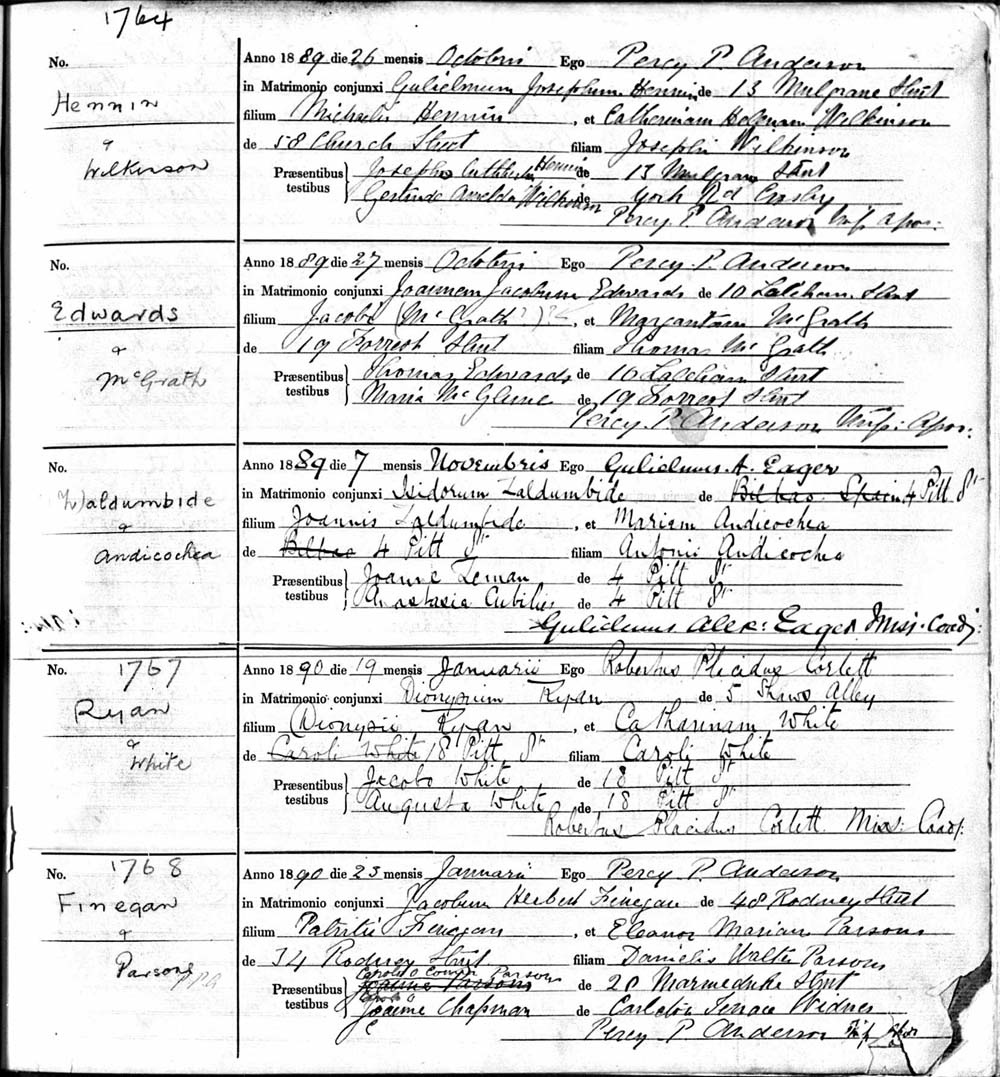 1764
No.
Hennin
&
Wilkinson
Anno 1889 die 26 mensis Octobris Ego Percy P. Anderson
in Matrimonio conjunxi Gulielmum Josephum Hennin de 13 Mulgrave Street
filium Michaelis Hennin, et Catherinam Helenam Wilkinson
de 58 Church Street filiam Josephi Wilkinson
Præsentibus testibus Josepho Cuthberto Hennin de 13 Mulgrave Street
Gertrude Amelda Wilkinson de York Rd Crosby
Percy P. Anderson Miss. Apos.
No.
Edwards
&
McGrath
Anno 1889 die 27 mensis Octobris Ego Percy P. Anderson
in Matrimonio conjunxi Joannem Jacobum Edwards de 10 Laleham Street
filium Jacobi (McGrath?)?, et Margaritam McGrath
de 19 Forrest Street filiam Thomae McGrath
Præsentibus testibus Thomas Edwards de 10 Laleham Street
Maria McGlune de 19 Forrest Street
Percy P. Anderson Miss: Apos:
No.
Zaldumbide
&
Andicochea
Anno 1889 die 7 mensis Novembris Ego Gulielmus A. Eager
in Matrimonio conjunxi Isidorum Zaldumbide de Bilbao Spain 4 Pitt St
filium Joannis Zaldumbide, et Mariam Andicochea
de Bilbao 4 Pitt St filiam Antonii Andicochea
Præsentibus testibus Joanne Leman de 4 Pitt St
Anastasia Cubilies de 4 Pitt St
Gulielmus Alex: Eager Miss. Coadj:
No. 1767
Ryan
&
White
Anno 1890 die 19 mensis Januarii Ego Robertus Placidus Corlett
in Matrimonio conjunxi Dionysium Ryan de 5 Shaws Alley
filium Dionysii Ryan, et Catharinam White
de Caroli White 18 Pitt St filiam Caroli White
Præsentibus testibus Jacobo White de 18 Pitt St
Augusta White de 18 Pitt St
Robertus Placidus Corlett Miss: Coadj:
No. 1768
Finegan
&
Parsons
PPA
Anno 1890 die 23 mensis Januarii Ego Percy P. Anderson
in Matrimonio conjunxi Jacobum Herbert Finegan de 48 Rodney Street
filium Patritii Finegan, et Eleanor Mariam Parsons
de 34 Rodney Street filiam Danielis Walter Parsons
Præsentibus testibus Parsons de 28 Marmeduke Street
Chapman de Carleton Terrace Widnes
Percy P. Anderson Miss Apos